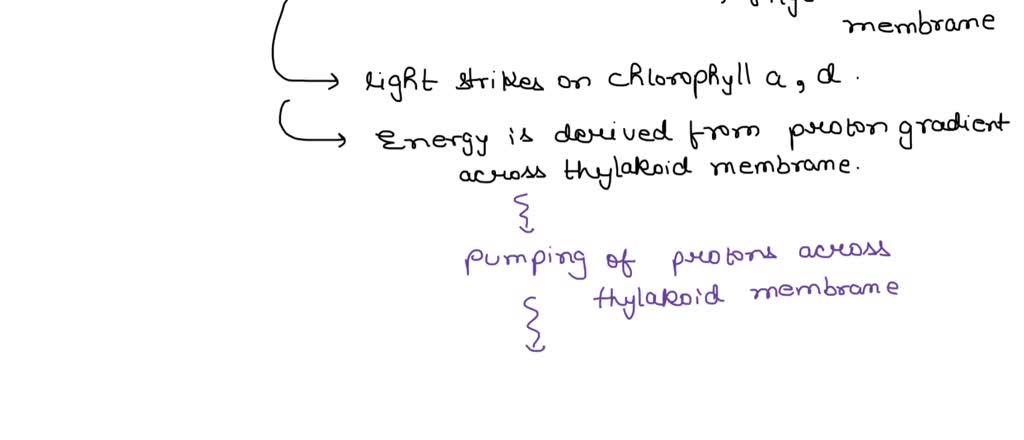 membrane
light strikes on chlorophyll a, d.
Energy is derived from proton gradient
across thylakoid membrane.
pumping of protons across
thylakoid membrane